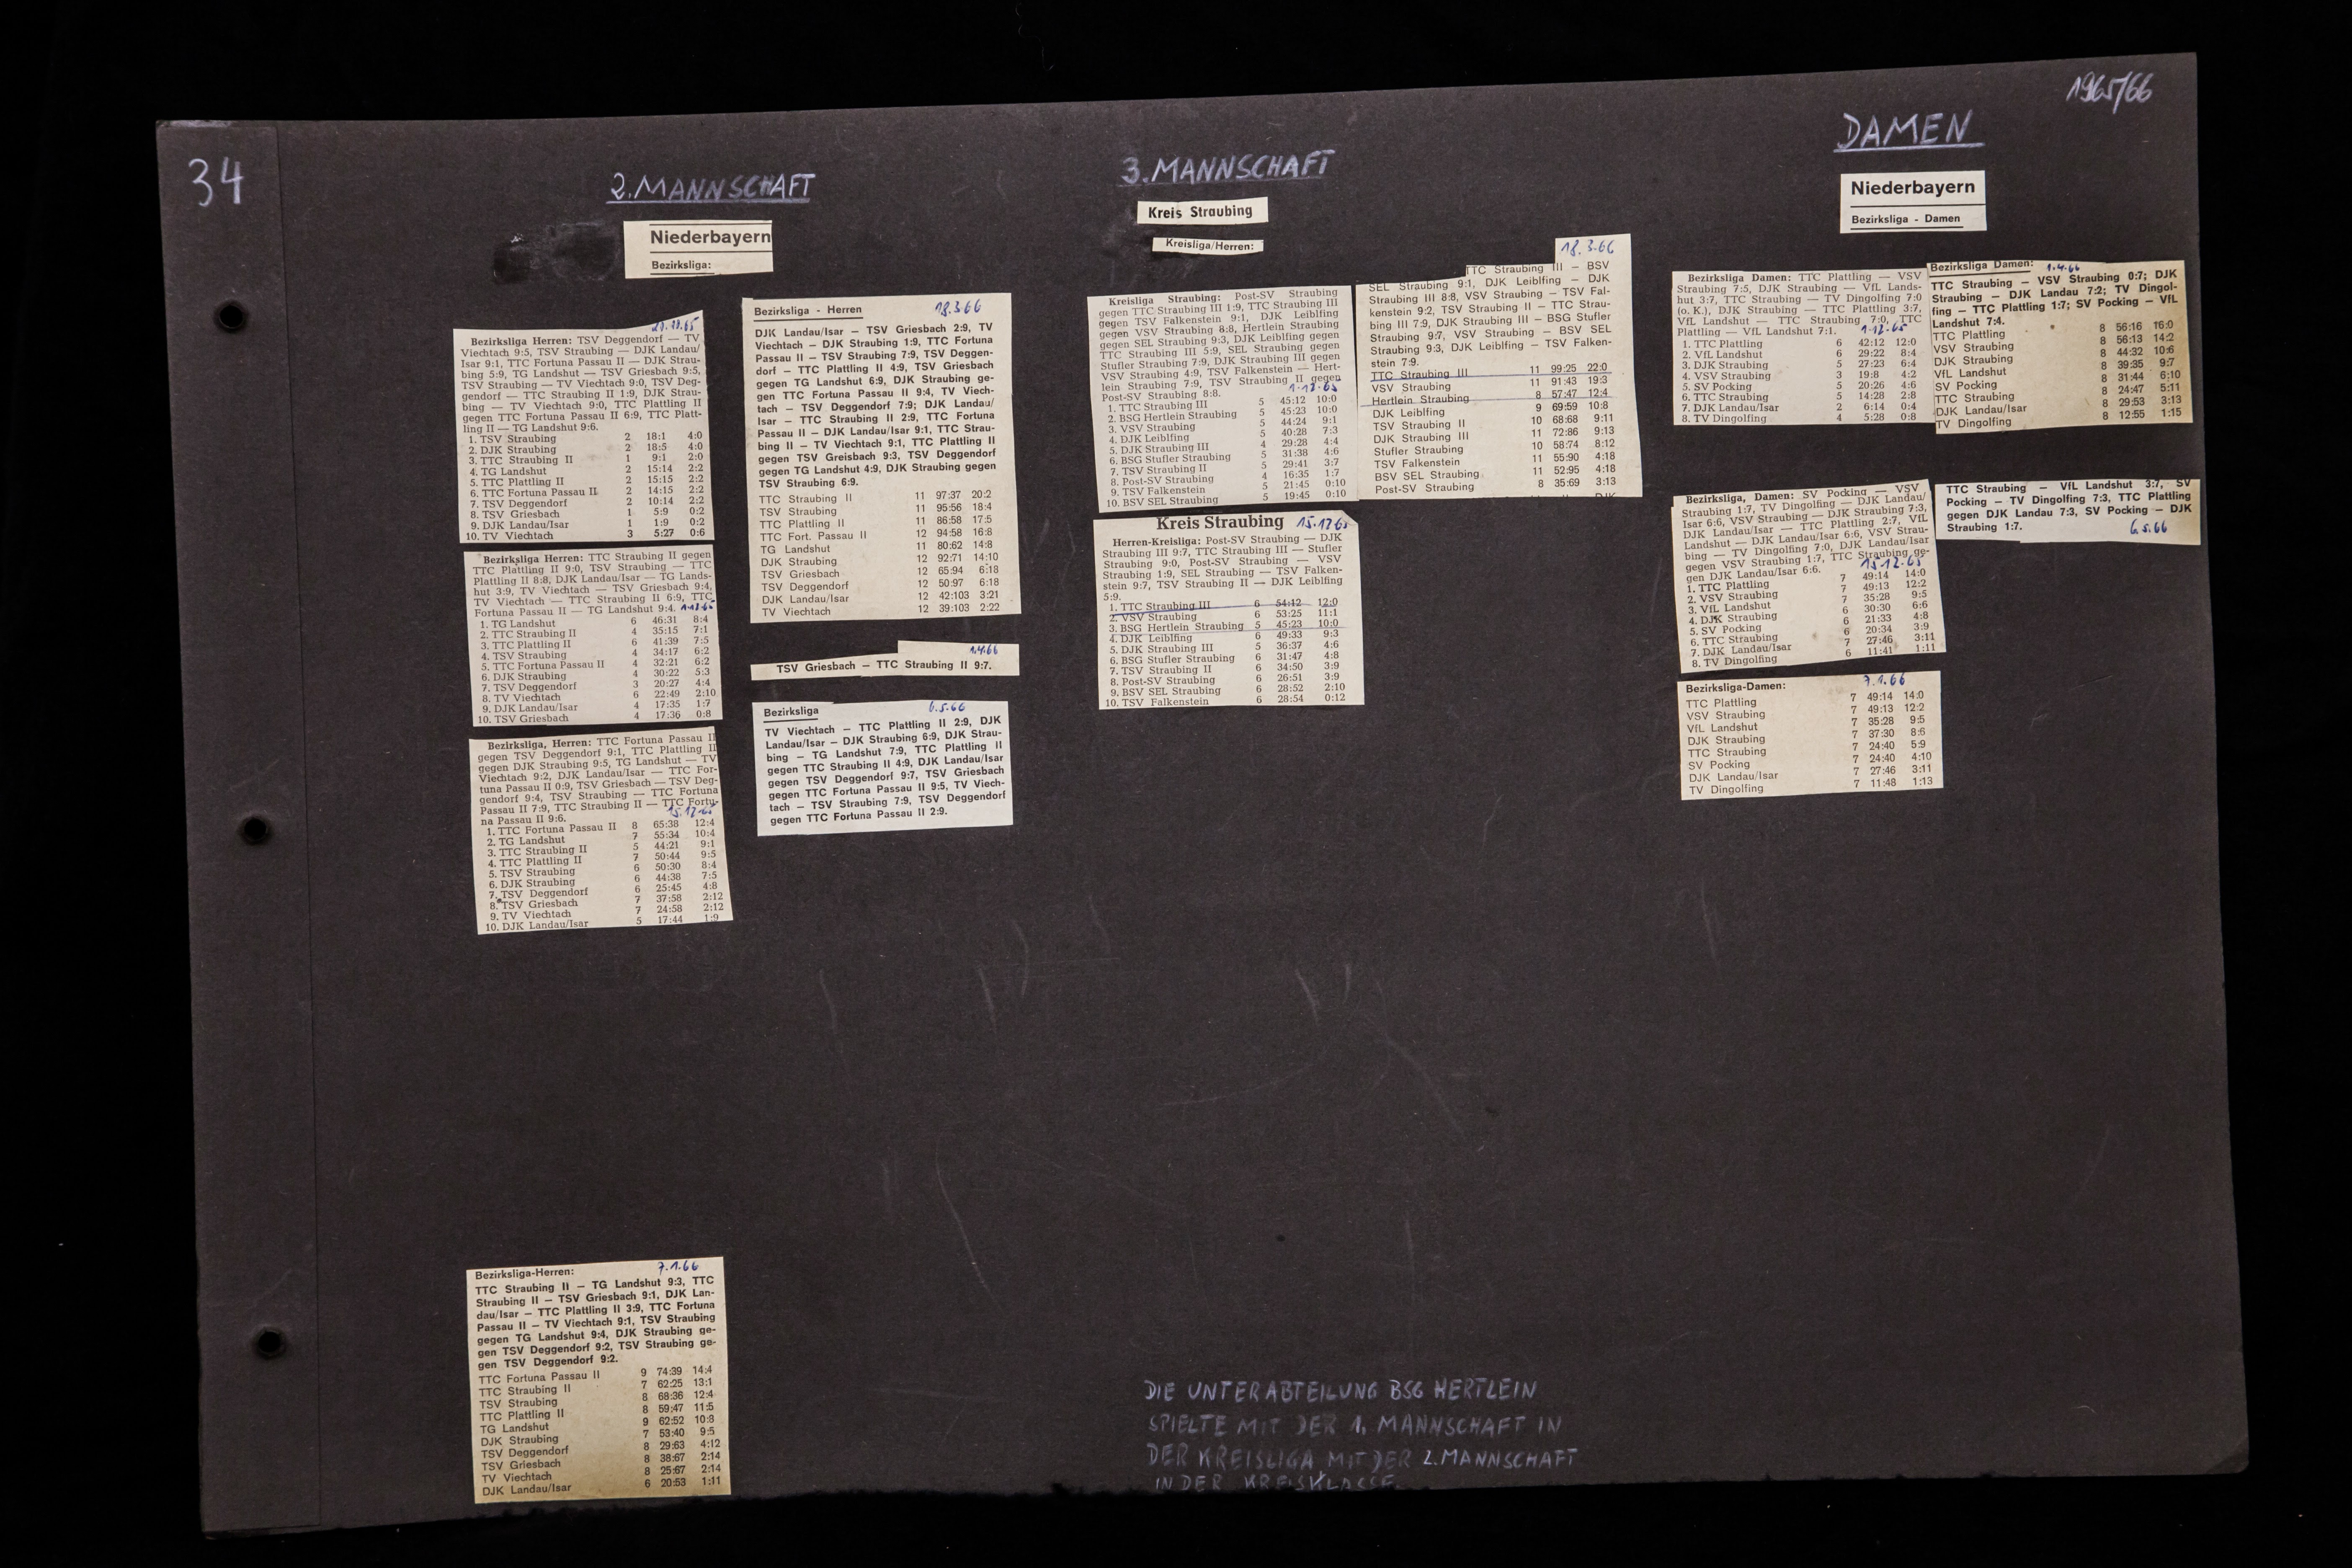 34
1965/66
2. MANNSCHAFT
Niederbayern
Bezirksliga:
Bezirksliga Herren: TSV Deggendorf — TV
Viechtach 9:5, TSV Straubing — DJK Landau/
Isar 9:1, TTC Fortuna Passau II — DJK Strau-
bing 5:9, TG Landshut — TSV Griesbach 9:5,
TSV Straubing — TV Viechtach 9:0, TSV Deg-
gendorf — TTC Straubing II 1:9, DJK Strau-
bing — TV Viechtach 9:0, TTC Plattling II
gegen TTC Fortuna Passau II 6:9, TTC Platt-
ling II — TG Landshut 9:6.
1. TSV Straubing 2 18:1 4:0
2. DJK Straubing 2 18:5 4:0
3. TTC Straubing II 1 9:1 2:0
4. TG Landshut 2 15:14 2:2
5. TTC Plattling II 2 15:15 2:2
6. TTC Fortuna Passau II 2 14:15 2:2
7. TSV Deggendorf 2 10:14 2:2
8. TSV Griesbach 1 5:9 0:2
9. DJK Landau/Isar 1 1:9 0:2
10. TV Viechtach 3 5:27 0:6
Bezirksliga Herren: TTC Straubing II gegen
TTC Plattling II 9:0, TSV Straubing — TTC
Plattling II 8:8, DJK Landau/Isar — TG Lands-
hut 3:9, TV Viechtach — TSV Griesbach 9:4,
TV Viechtach — TTC Straubing II 6:9, TTC
Fortuna Passau II — TG Landshut 9:4. 1.12.65
1. TG Landshut 6 46:31 8:4
2. TTC Straubing II 4 35:15 7:1
3. TTC Plattling II 6 41:39 7:5
4. TSV Straubing 4 34:17 6:2
5. TTC Fortuna Passau II 4 32:21 6:2
6. DJK Straubing 4 30:22 5:3
7. TSV Deggendorf 3 20:27 4:4
8. TV Viechtach 6 22:49 2:10
9. DJK Landau/Isar 4 17:35 1:7
10. TSV Griesbach 4 17:36 0:8
Bezirksliga, Herren: TTC Fortuna Passau II
gegen TSV Deggendorf 9:1, TTC Plattling II
gegen DJK Straubing 9:5, TG Landshut — TV
Viechtach 9:2, DJK Landau/Isar — TTC For-
tuna Passau II 0:9, TSV Griesbach — TSV Deg-
gendorf 9:4, TSV Straubing — TTC Fortuna
Passau II 7:9, TTC Straubing II — TTC Fortu-
na Passau II 9:6. 15.12.65
1. TTC Fortuna Passau II 8 65:38 12:4
2. TG Landshut 7 55:34 10:4
3. TTC Straubing II 5 44:21 9:1
4. TTC Plattling II 7 50:44 9:5
5. TSV Straubing 6 50:30 8:4
6. DJK Straubing 6 44:38 7:5
7. TSV Deggendorf 6 25:45 4:8
8. TSV Griesbach 7 37:58 2:12
9. TV Viechtach 7 24:58 2:12
10. DJK Landau/Isar 5 17:44 1:9
Bezirksliga-Herren: 7.1.66
TTC Straubing II — TG Landshut 9:3, TTC
Straubing II — TSV Griesbach 9:1, DJK Lan-
dau/Isar — TTC Plattling II 3:9, TTC Fortuna
Passau II — TV Viechtach 9:1, TSV Straubing
gegen TG Landshut 9:4, DJK Straubing ge-
gen TSV Deggendorf 9:2, TSV Straubing ge-
gen TSV Deggendorf 9:2.
TTC Fortuna Passau II 9 74:39 14:4
TTC Straubing II 7 62:25 13:1
TSV Straubing 8 68:36 12:4
TTC Plattling II 8 59:47 11:5
TG Landshut 9 62:52 10:8
DJK Straubing 7 53:40 9:5
TSV Deggendorf 8 29:63 4:12
TSV Griesbach 8 38:67 2:14
TV Viechtach 8 25:67 2:14
DJK Landau/Isar 6 20:53 1:11
Bezirksliga - Herren 18.3.66
DJK Landau/Isar — TSV Griesbach 2:9, TV
Viechtach — DJK Straubing 1:9, TTC Fortuna
Passau II — TSV Straubing 7:9, TSV Deggen-
dorf — TTC Plattling II 4:9, TSV Griesbach
gegen TG Landshut 6:9, DJK Straubing ge-
gen TTC Fortuna Passau II 9:4, TV Viech-
tach — TSV Deggendorf 7:9; DJK Landau/
Isar — TTC Straubing II 2:9, TTC Fortuna
Passau II — DJK Landau/Isar 9:1, TTC Strau-
bing II — TV Viechtach 9:1, TTC Plattling II
gegen TSV Greisbach 9:3, TSV Deggendorf
gegen TG Landshut 4:9, DJK Straubing gegen
TSV Straubing 6:9.
TTC Straubing II 11 97:37 20:2
TSV Straubing 11 95:56 18:4
TTC Plattling II 11 86:58 17:5
TTC Fort. Passau II 12 94:58 16:8
TG Landshut 11 80:62 14:8
DJK Straubing 12 92:71 14:10
TSV Griesbach 12 65:94 6:18
TSV Deggendorf 12 50:97 6:18
DJK Landau/Isar 12 42:103 3:21
TV Viechtach 12 39:103 2:22
1.4.66
TSV Griesbach — TTC Straubing II 9:7.
Bezirksliga 6.5.66
TV Viechtach — TTC Plattling II 2:9, DJK
Landau/Isar — DJK Straubing 6:9, DJK Strau-
bing — TG Landshut 7:9, TTC Plattling II
gegen TTC Straubing II 4:9, DJK Landau/Isar
gegen TSV Deggendorf 9:7, TSV Griesbach
gegen TTC Fortuna Passau II 9:5, TV Viech-
tach — TSV Straubing 7:9, TSV Deggendorf
gegen TTC Fortuna Passau II 2:9.
3. MANNSCHAFT
Kreis Straubing
Kreisliga/Herren:
Kreisliga Straubing: Post-SV Straubing
gegen TTC Straubing III 1:9, TTC Straubing III
gegen TSV Falkenstein 9:1, DJK Leiblfing
gegen VSV Straubing 8:8, Hertlein Straubing
gegen SEL Straubing 9:3, DJK Leiblfing gegen
TTC Straubing III 5:9, SEL Straubing gegen
Stufler Straubing 7:9, DJK Straubing III gegen
VSV Straubing 4:9, TSV Falkenstein — Hert-
lein Straubing 7:9, TSV Straubing II gegen
Post-SV Straubing 8:8. 1.12.65
1. TTC Straubing III 5 45:12 10:0
2. BSG Hertlein Straubing 5 45:23 10:0
3. VSV Straubing 5 44:24 9:1
4. DJK Leiblfing 5 40:28 7:3
5. DJK Straubing III 4 29:28 4:4
6. BSG Stufler Straubing 5 31:38 4:6
7. TSV Straubing II 5 29:41 3:7
8. Post-SV Straubing 4 16:35 1:7
9. TSV Falkenstein 5 21:45 0:10
10. BSV SEL Straubing 5 19:45 0:10
Kreis Straubing 15.12.65
Herren-Kreisliga: Post-SV Straubing — DJK
Straubing III 9:7, TTC Straubing III — Stufler
Straubing 9:0, Post-SV Straubing — VSV
Straubing 1:9, SEL Straubing — TSV Falken-
stein 9:7, TSV Straubing II — DJK Leiblfing
5:9.
1. TTC Straubing III 6 54:12 12:0
2. VSV Straubing 6 53:25 11:1
3. BSG Hertlein Straubing 5 45:23 10:0
4. DJK Leiblfing 6 49:33 9:3
5. DJK Straubing III 5 36:37 4:6
6. BSG Stufler Straubing 6 31:47 4:8
7. TSV Straubing II 6 34:50 3:9
8. Post-SV Straubing 6 26:51 3:9
9. BSV SEL Straubing 6 28:52 2:10
10. TSV Falkenstein 6 28:54 0:12
18.3.66
TTC Straubing III — BSV
SEL Straubing 9:1, DJK Leiblfing — DJK
Straubing III 8:8, VSV Straubing — TSV Fal-
kenstein 9:2, TSV Straubing II — TTC Strau-
bing III 7:9, DJK Straubing III — BSG Stufler
Straubing 9:7, VSV Straubing — BSV SEL
Straubing 9:3, DJK Leiblfing — TSV Falken-
stein 7:9.
TTC Straubing III 11 99:25 22:0
VSV Straubing 11 91:43 19:3
Hertlein Straubing 8 57:47 12:4
DJK Leiblfing 9 69:59 10:8
TSV Straubing II 10 68:68 9:11
DJK Straubing III 11 72:86 9:13
Stufler Straubing 10 58:74 8:12
TSV Falkenstein 11 55:90 4:18
BSV SEL Straubing 11 52:95 4:18
Post-SV Straubing 8 35:69 3:13
DIE UNTERABTEILUNG BSG HERTLEIN
SPIELTE MIT DER 1. MANNSCHAFT IN
DER KREISLIGA MIT DER 2. MANNSCHAFT
IN DER KREISKLASSE.
DAMEN
Niederbayern
Bezirksliga - Damen
Bezirksliga Damen: TTC Plattling — VSV
Straubing 7:5, DJK Straubing — VfL Lands-
hut 3:7, TTC Straubing — TV Dingolfing 7:0
(o. K.), DJK Straubing — TTC Plattling 3:7,
VfL Landshut — TTC Straubing 7:0, TTC
Plattling — VfL Landshut 7:1. 1.12.65
1. TTC Plattling 6 42:12 12:0
2. VfL Landshut 6 29:22 8:4
3. DJK Straubing 5 27:23 6:4
4. VSV Straubing 3 19:8 4:2
5. SV Pocking 5 20:26 4:6
6. TTC Straubing 5 14:28 2:8
7. DJK Landau/Isar 2 6:14 0:4
8. TV Dingolfing 4 5:28 0:8
Bezirksliga, Damen: SV Pocking — VSV
Straubing 1:7, TV Dingolfing — DJK Landau/
Isar 6:6, VSV Straubing — DJK Straubing 7:3,
DJK Landau/Isar — TTC Plattling 2:7, VfL
Landshut — DJK Landau/Isar 6:6, VSV Strau-
bing — TV Dingolfing 7:0, DJK Landau/Isar
gegen VSV Straubing 1:7, TTC Straubing ge-
gen DJK Landau/Isar 6:6. 15.12.65
1. TTC Plattling 7 49:14 14:0
2. VSV Straubing 7 49:13 12:2
3. VfL Landshut 7 35:28 9:5
4. DJK Straubing 6 30:30 6:6
5. SV Pocking 6 21:33 4:8
6. TTC Straubing 6 20:34 3:9
7. DJK Landau/Isar 7 27:46 3:11
8. TV Dingolfing 6 11:41 1:11
Bezirksliga-Damen: 7.1.66
TTC Plattling 7 49:14 14:0
VSV Straubing 7 49:13 12:2
VfL Landshut 7 35:28 9:5
DJK Straubing 7 37:30 8:6
TTC Straubing 7 24:40 5:9
SV Pocking 7 24:40 4:10
DJK Landau/Isar 7 27:46 3:11
TV Dingolfing 7 11:48 1:13
Bezirksliga Damen: 1.4.66
TTC Straubing — VSV Straubing 0:7; DJK
Straubing — DJK Landau 7:2; TV Dingol-
fing — TTC Plattling 1:7; SV Pocking — VfL
Landshut 7:4.
TTC Plattling 8 56:16 16:0
VSV Straubing 8 56:13 14:2
DJK Straubing 8 44:32 10:6
VfL Landshut 8 39:35 9:7
SV Pocking 8 31:44 6:10
TTC Straubing 8 24:47 5:11
DJK Landau/Isar 8 29:53 3:13
TV Dingolfing 8 12:55 1:15
TTC Straubing — VfL Landshut 3:7, SV
Pocking — TV Dingolfing 7:3, TTC Plattling
gegen DJK Landau 7:3, SV Pocking — DJK
Straubing 1:7. 6.5.66